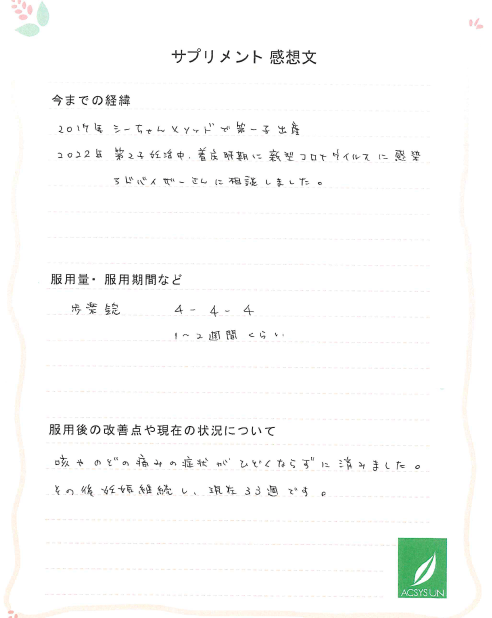 サプリメント 感想文
今までの経緯
2017年 シーちゃんメソッドで第一子出産
2022年 第2子妊活中、着床時期に新型コロナウイルスに感染
アドバイザーさんに相談しました。
服用量・服用期間など
歩業錠 4 - 4 - 4
1～2週間くらい
服用後の改善点や現在の状況について
咳やのどの痛みの症状がひどくならずに済みました。
その後妊娠継続し、現在33週です。
ACSYSUN